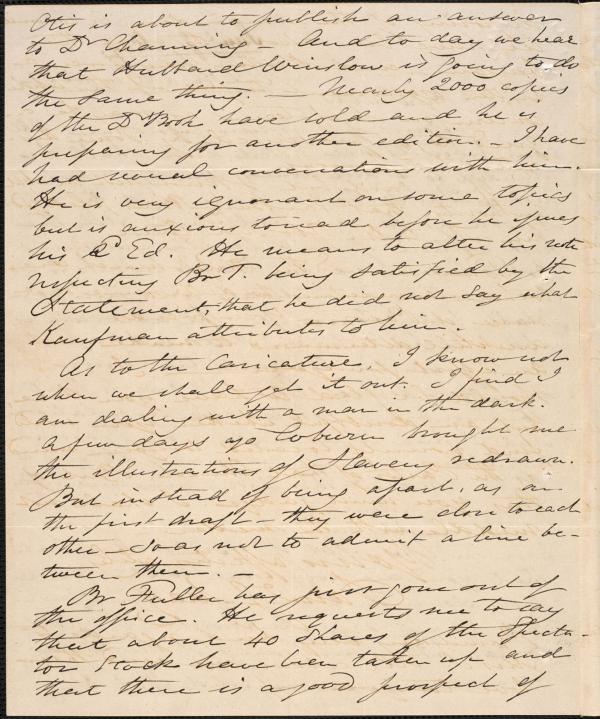 Otis is about to publish an answer
to Dr Channing – And to day we hear
that Hubbard Winslow is going to do
the same thing. – Nearly 2000 copies
of the Drs Book have sold and he is
preparing for another edition. – I have
had several conversations with him.
He is very ignorant on some topics
but is anxious to read before he issues
his 2d Ed. He means to alter his note
respecting Br T. being satisfied by the
Statement, that he did not say what
Kaufman attributes to him.
As to the Caricature, I know not
when we shall get it out. I find I
am dealing with a man in the dark.
A few days ago Coburn brought me
the illustrations of Slavery redrawn.
But instead of being apart, as in
the first draft – they were close to each
other – so as not to admit a line be-
tween them. –
Br Fuller has just gone out of
the office. He requests me to say
that about 40 Shares of the Specta-
tor Stock have been taken up and
that there is a good prospect of